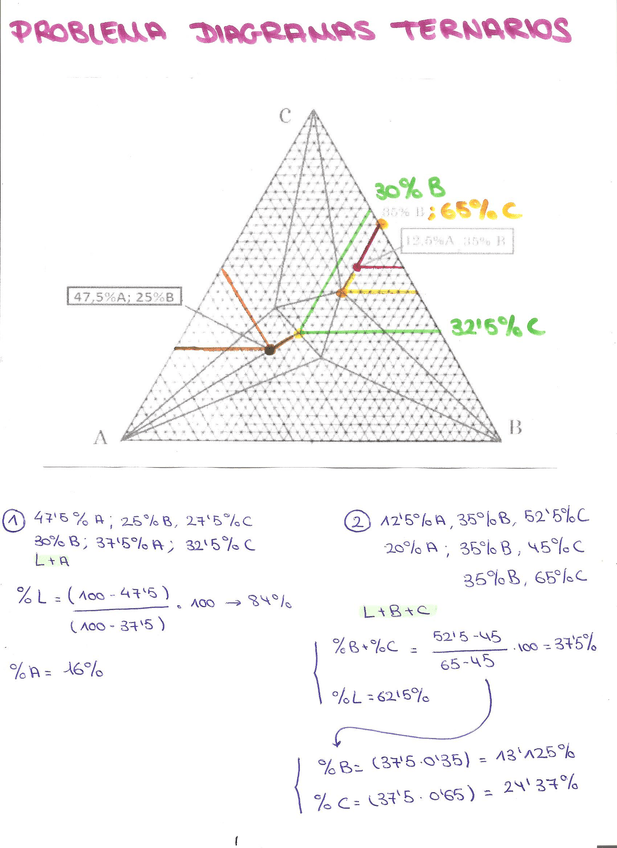 PROBLEMA DIAGRAMAS TERNARIOS
C
30% B
35% B ; 65% C
12,5%A 35% B
47,5%A; 25%B
32'5% C
A
B
① 47'5% A; 25% B, 27'5% C
30% B; 37'5% A; 32'5% C
L+A
% L = (100 - 47'5) / (100 - 37'5) · 100 → 84%
% A = 16%
② 12'5% A, 35% B, 52'5% C
20% A; 35% B, 45% C
35% B, 65% C
L+B+C
% B + % C = 52'5 - 45 / 65 - 45 · 100 = 37'5%
% L = 62'5%
% B = (37'5 · 0'35) = 13'125%
% C = (37'5 · 0'65) = 24'37%
1